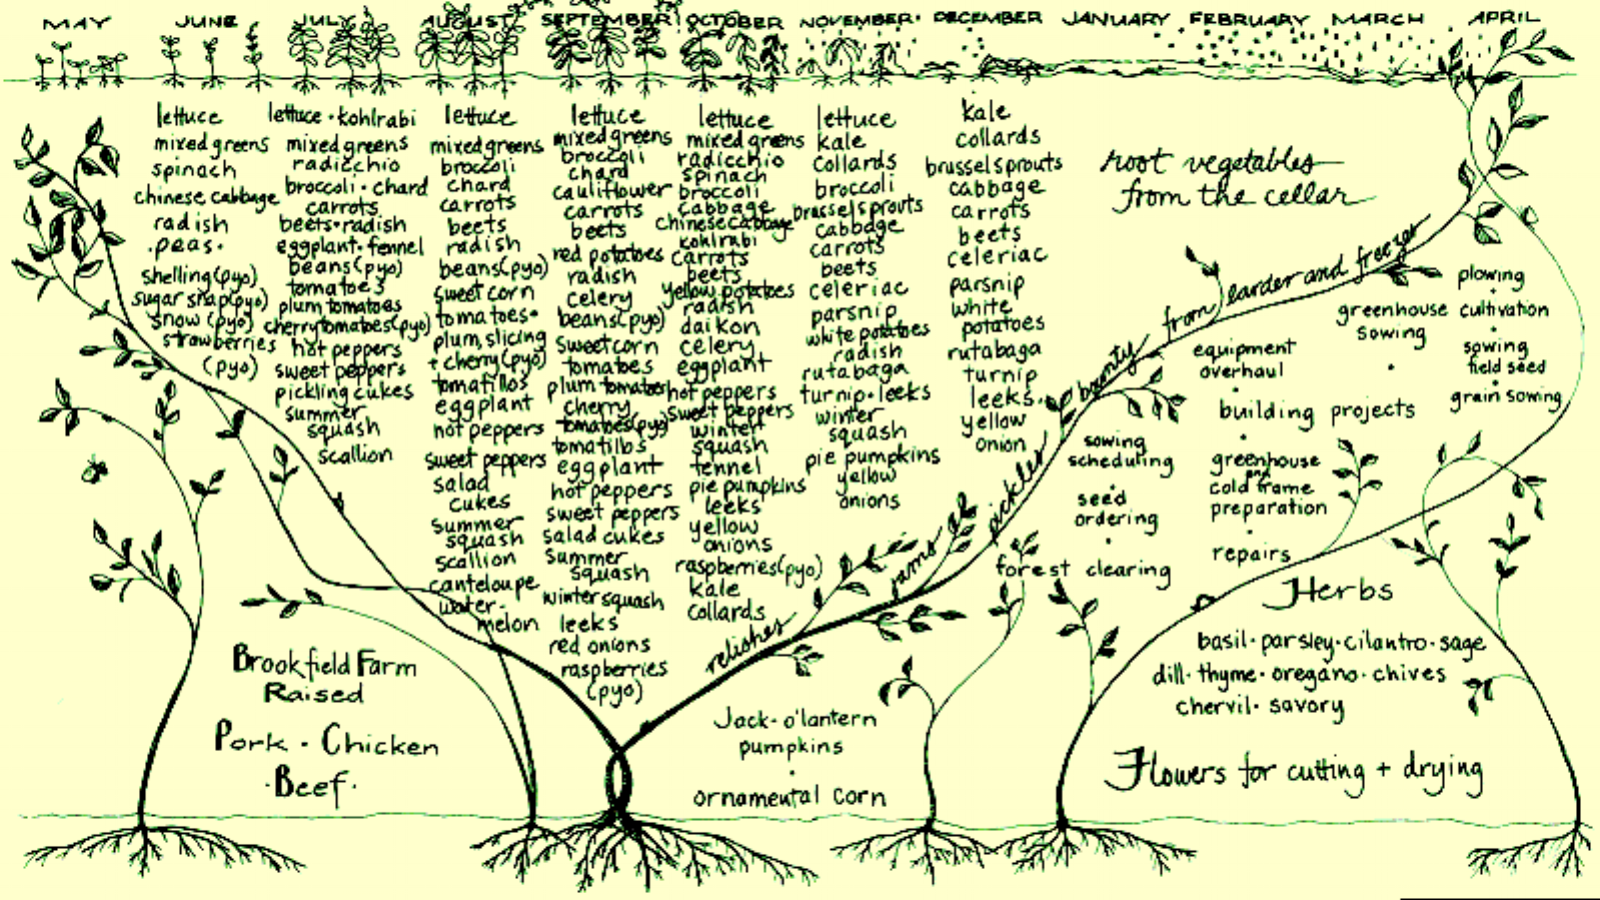 MAY JUNE JULY AUGUST SEPTEMBER OCTOBER NOVEMBER DECEMBER JANUARY FEBRUARY MARCH APRIL
lettuce
mixed greens
spinach
chinese cabbage
radish
.peas.
shelling (pyo)
sugar snap (pyo)
snow (pyo)
strawberries
(pyo)
lettuce · kohlrabi
mixed greens
radicchio
broccoli · chard
carrots
beets · radish
eggplant · fennel
beans (pyo)
tomatoes
plum tomatoes
cherry tomatoes (pyo)
hot peppers
sweet peppers
pickling cukes
summer
squash
scallion
lettuce
mixed greens
broccoli
chard
carrots
beets
radish
beans (pyo)
sweet corn
tomatoes·
plum, slicing
+ cherry (pyo)
tomatillos
eggplant
hot peppers
sweet peppers
salad
cukes
summer
squash
scallion
canteloupe
water-
melon
lettuce
mixed greens
broccoli
chard
cauliflower
carrots
beets
red potatoes
radish
celery
beans (pyo)
sweet corn
tomatoes
plum tomatoes
cherry
tomatoes (pyo)
tomatillos
eggplant
hot peppers
sweet peppers
salad cukes
summer
squash
winter squash
leeks
red onions
raspberries
(pyo)
lettuce
mixed greens
radicchio
spinach
broccoli
cabbage
chinese cabbage
kohlrabi
carrots
beets
yellow potatoes
radish
daikon
celery
eggplant
hot peppers
sweet peppers
winter
squash
fennel
pie pumpkins
leeks
yellow
onions
raspberries (pyo)
kale
collards
lettuce
kale
collards
broccoli
brussel sprouts
cabbage
carrots
beets
celeriac
parsnip
white potatoes
radish
rutabaga
turnip · leeks
winter
squash
pie pumpkins
yellow
onions
kale
collards
brussel sprouts
cabbage
carrots
beets
celeriac
parsnip
white
potatoes
rutabaga
turnip
leeks
yellow
onion
root vegetables
from the cellar
relishes jams & pickles bounty from larder and freezer
sowing
scheduling
·
seed
ordering
·
forest clearing
equipment
overhaul
·
building projects
·
greenhouse
and
cold frame
preparation
·
repairs
greenhouse
sowing
·
plowing
·
cultivation
·
sowing
field seed
·
grain sowing
Brookfield Farm
Raised
Pork · Chicken
·Beef·
Jack-o'lantern
pumpkins
·
ornamental corn
Herbs
basil · parsley · cilantro · sage
dill · thyme · oregano · chives
chervil · savory
Flowers for cutting + drying